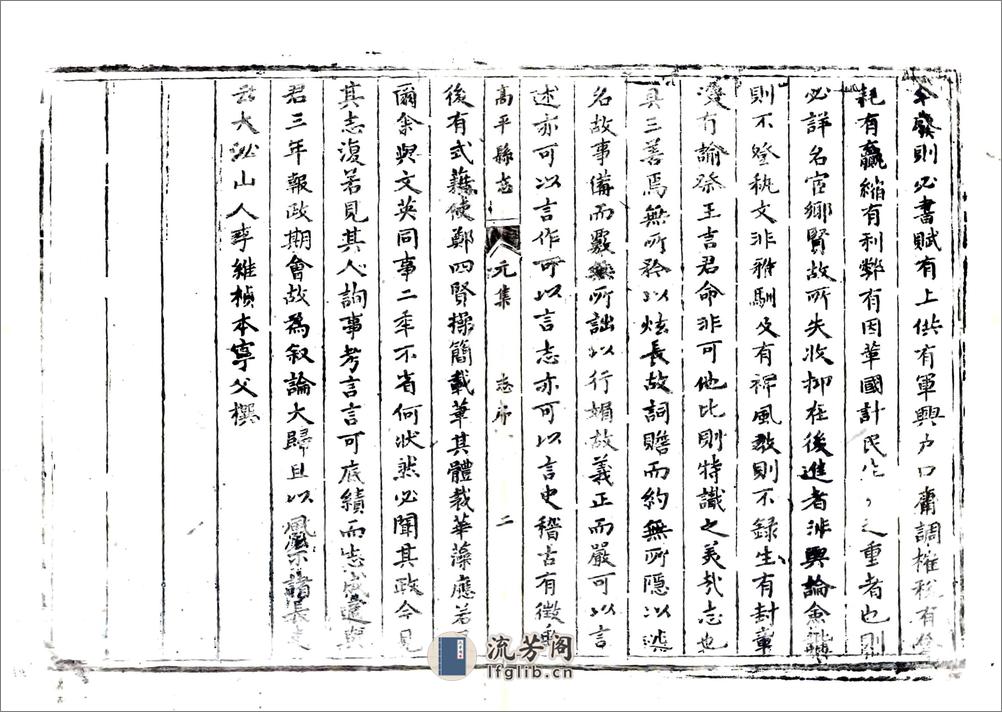 發則必書賦有上供有軍興户口庸調榷稅有
耗有羸縮有利弊有因革國計民之重者也則
必詳名宦鄉賢故所失收抑在後進者非輿論僉
則不登執文非雅馴及有裨風教則不錄生有封章
没有諭祭王言君命非可他比則特識之美哉志也
具三善焉無所矜以炫長故詞贍而約無所隱以
名故事備而覈無所詘以行媚故義正而嚴可以言
述亦可以言作可以言志亦可以言史稽古有徵
高平縣志 元集 志序 二
後有式藉使鄭四賢操簡載筆其體裁華藻應若
爾余與文英同事二年不省何狀然必聞其政今見
其志復若見其人詢事考言言可底績而志成還與
君三年報政期會故爲叙論大歸且以風示諸長吏
云大泌山人李維楨本寧父撰
流芳阁
lfglib.cn